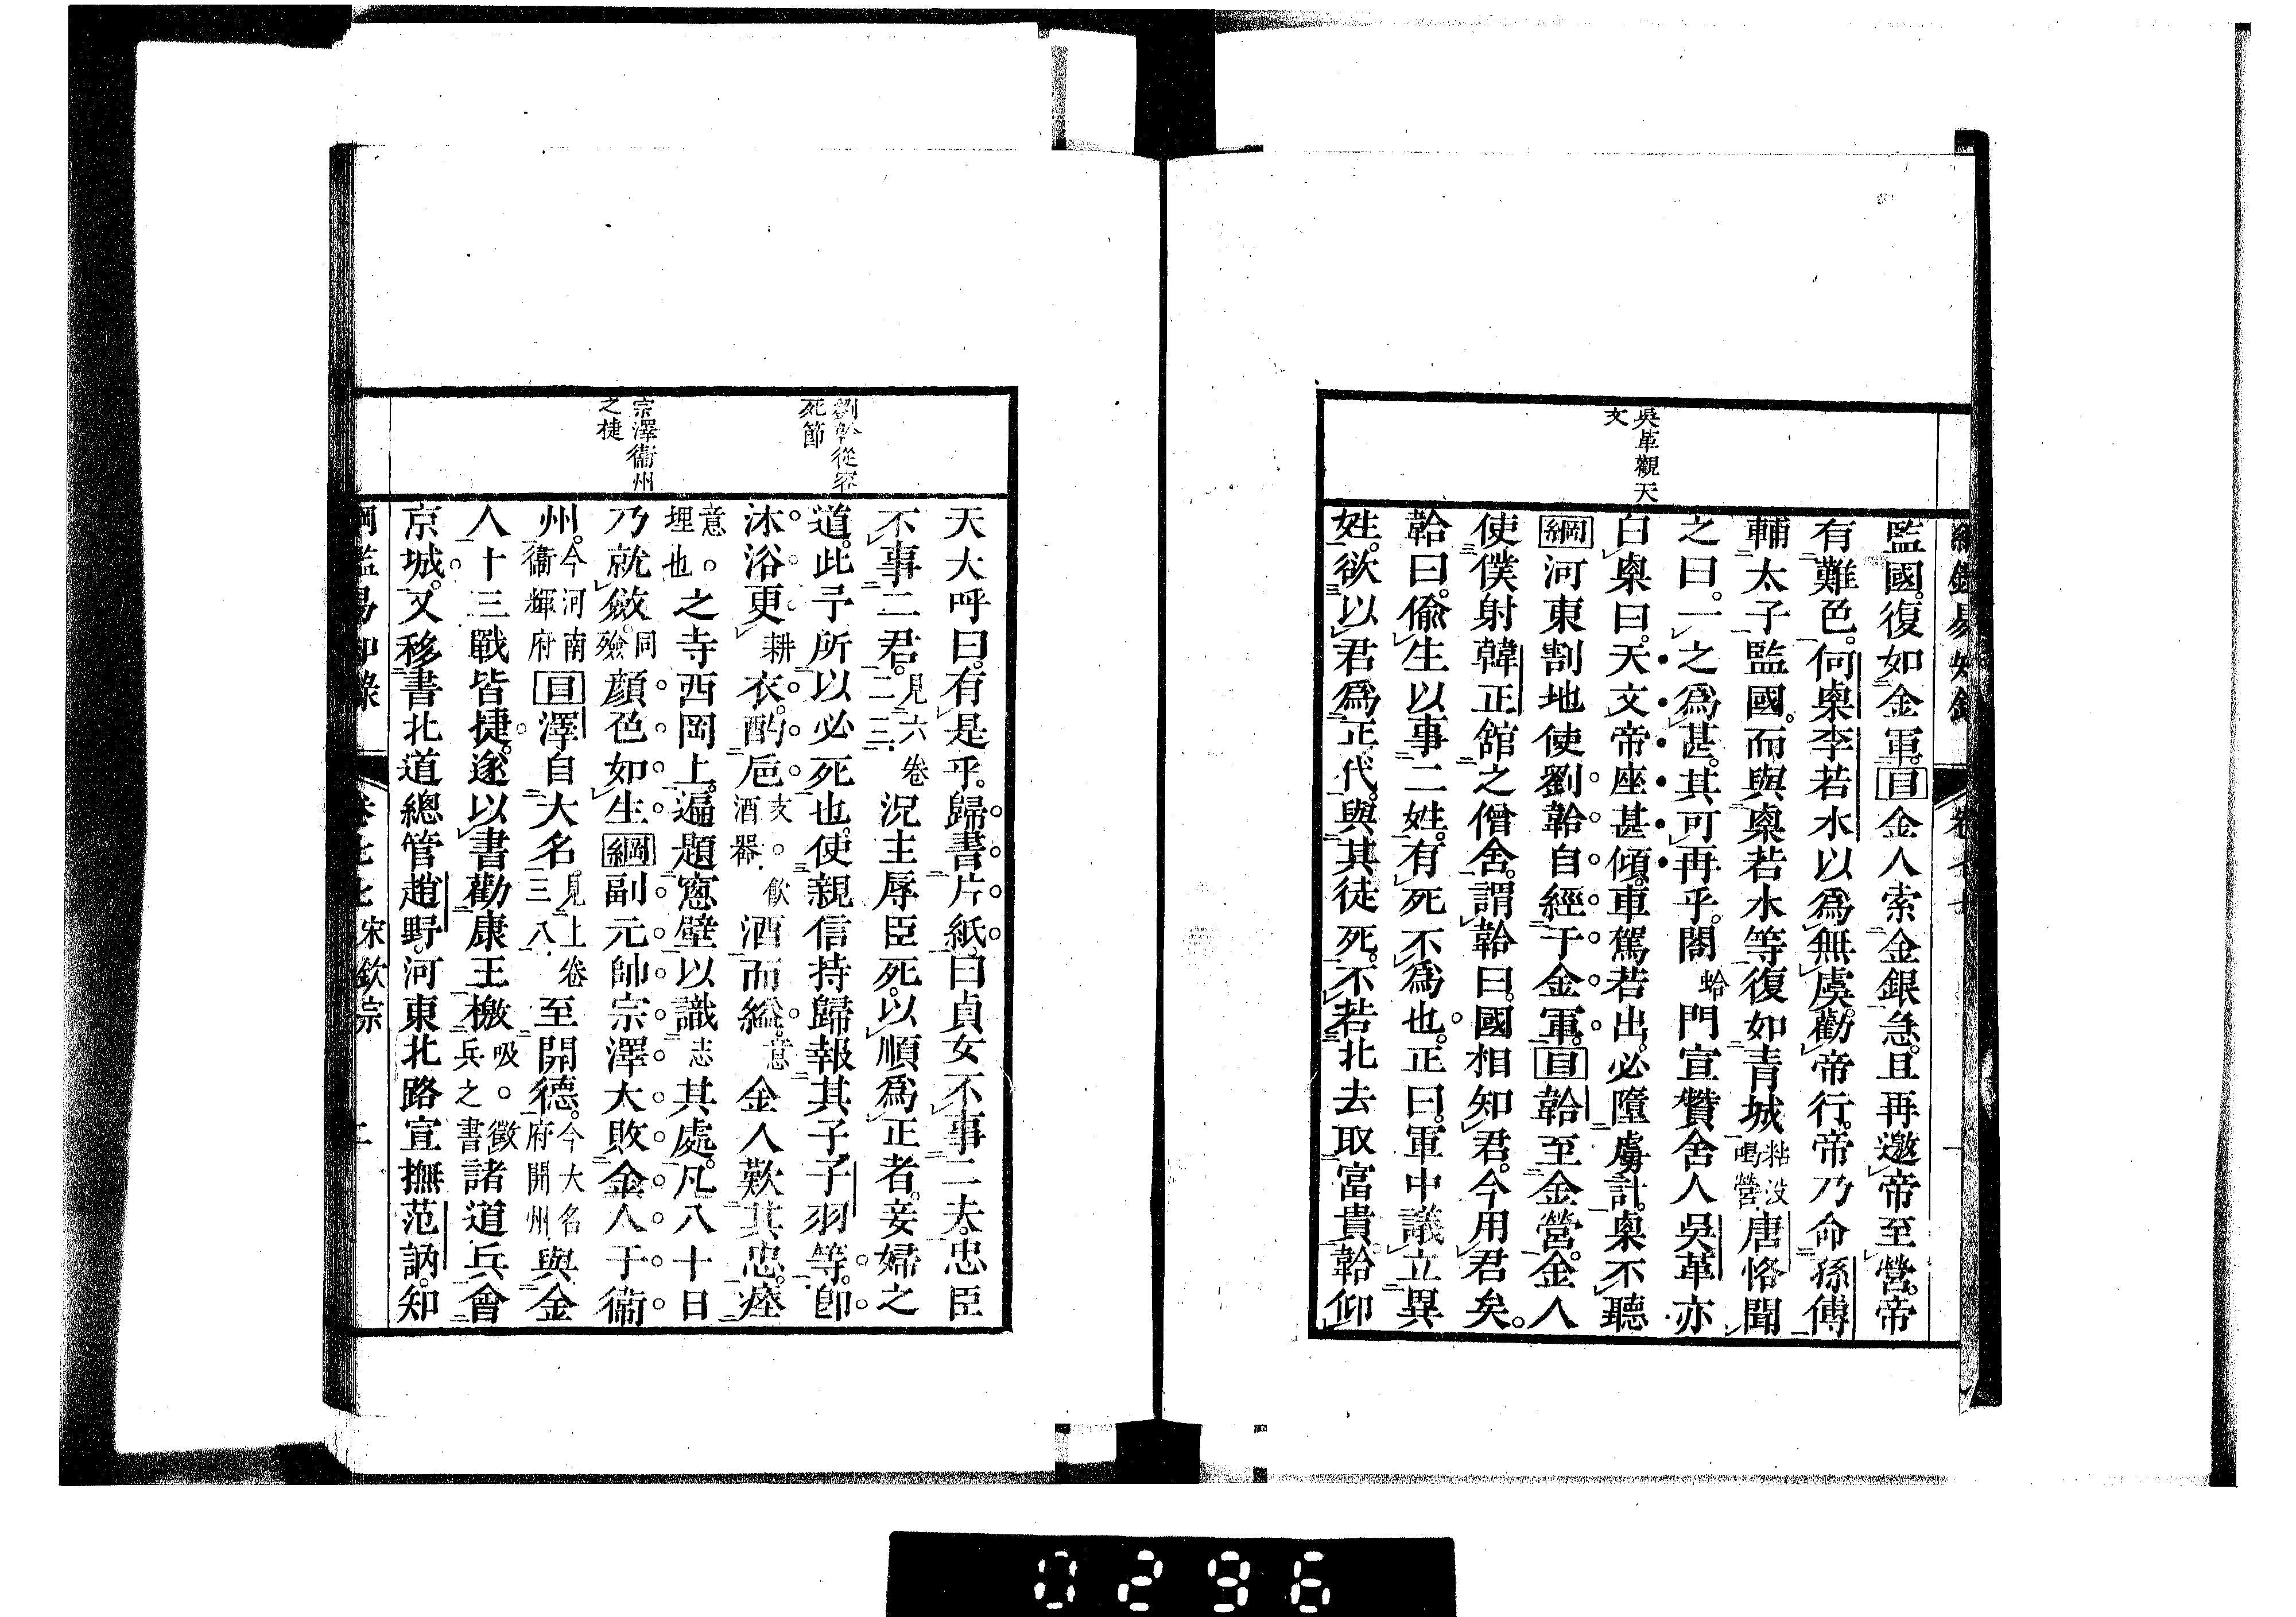 吳革觀天
文
監國。復如金軍。目金人索金銀急。且再邀帝至營。帝
有難色。何㮚李若水以為無虞。勸帝行。帝乃命孫傅
輔太子監國。而與㮚若水等復如青城粘沒喝營唐恪聞
之曰。一之爲甚。其可再乎。閤蛤門宣贊舍人吳革亦
白㮚曰。天文帝座甚傾。車駕若出。必墮虜計。㮚不聽
綱河東割地使劉韐自經于金軍。目韐至金營。金人
使僕射韓正舘之僧舍。謂韐曰。國相知君。今用君矣。
韐曰。偷生以事二姓。有死不爲也。正曰。軍中議立異
姓。欲以君爲正代。與其徒死。不若北去取富貴。韐仰
劉韐從容
死節
宗澤衞州
之捷
天大呼曰。有是乎。歸書片紙。曰貞女不事二夫。忠臣
不事二君。見六卷二三況主辱臣死。以順爲正者。妾婦之
道。此予所以必死也。使親信持歸報其子子羽等。卽
沐浴更耕衣。酌巵支。酒器飮酒而縊。意金人歎其忠。瘞
意。埋也之寺西岡上。遍題窻壁以識志其處。凡八十日
乃就斂。同殮顏色如生綱副元帥宗澤大敗金人于衞
州。今河南衞輝府目澤自大名見上卷三八至開德。今大名府開州與金
人十三戰皆捷。遂以書勸康王檄吸。徵兵之書諸道兵會
京城。又移書北道總管趙野。河東北路宣撫范訥。知
宋欽宗